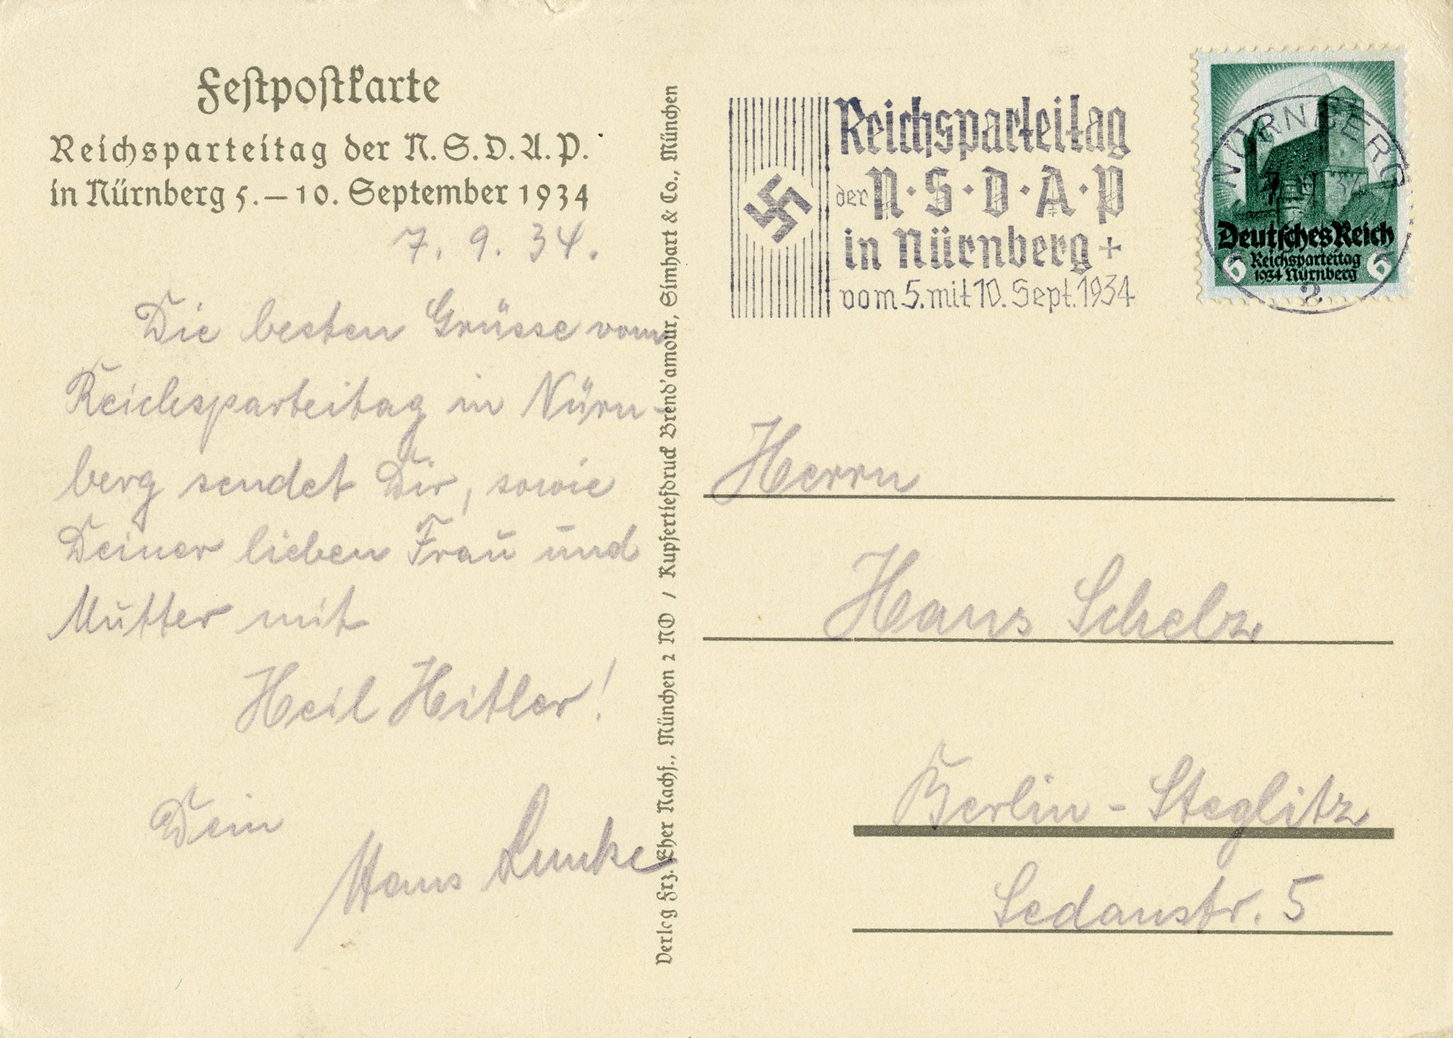 Festpostkarte
Reichsparteitag der N.S.D.A.P.
in Nürnberg 5.–10. September 1934
7. 9. 34.
Die besten Grüsse vom
Reichsparteitag in Nürn-
berg sendet Dir, sowie
Deiner lieben Frau und
Mutter mit
Heil Hitler!
Dein
Hans Lunke
Verlag Frz. Eher Nachf., München 2 NO / Kupfertiefdruck Brend'amour, Simhart & Co., München
Reichsparteitag
der N·S·D·A·P
in Nürnberg +
vom 5. mit 10. Sept. 1934
NÜRNBERG
2
Deutsches Reich
6 Reichsparteitag 6
1934 Nürnberg
Herrn
Hans Schelz
Berlin - Steglitz
Sedanstr. 5